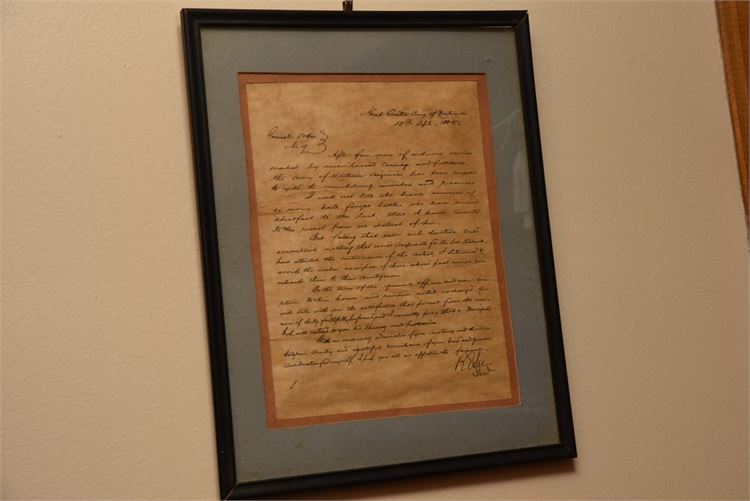 Head Quarters Army of
10th Apl. 1865
General Order
No 9
After four years of arduous service
marked by unsurpassed courage and fortitude,
the Army of Northern Virginia has been
to yield to overwhelming numbers and resources
I need not tell the brave survivors of
so many hard fought battles who have
steadfast to the last that I have
to this result from no distrust of
But feeling that valor and devotion could
accomplish nothing that would compensate for the loss that
have attended the continuance of the contest, I determined to
avoid the useless sacrifice of those whose past
endeared them to their Countrymen
By the terms of the officers and men can
return to their homes and remain until exchanged You
will take with you the satisfaction that proceeds from the
of duty faithfully performed, and I earnestly pray that a Merciful
God will extend to you his blessing and protection
With an admiration of your constancy and devotion
to your Country and a grateful remembrance of your kind and generous
consideration for myself, I bid you all an affectionate farewell
R E Lee
Genl